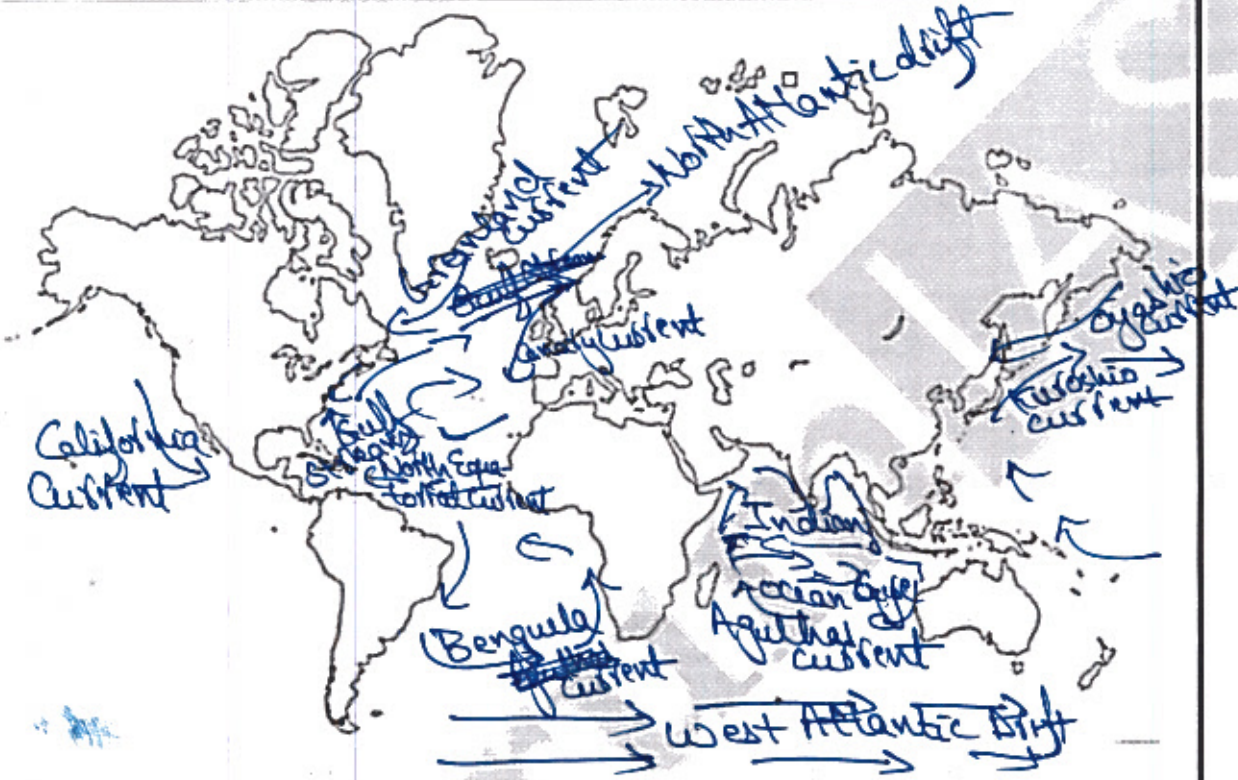 North Atlantic drift
Greenland
Current
Canary Current
Oyashio
Current
Kuroshio
current
California
Current
Gulf
North Equa-
torial current
Indian
ocean Gyre
Agulhas
current
Benguela
Current
West Atlantic Drift